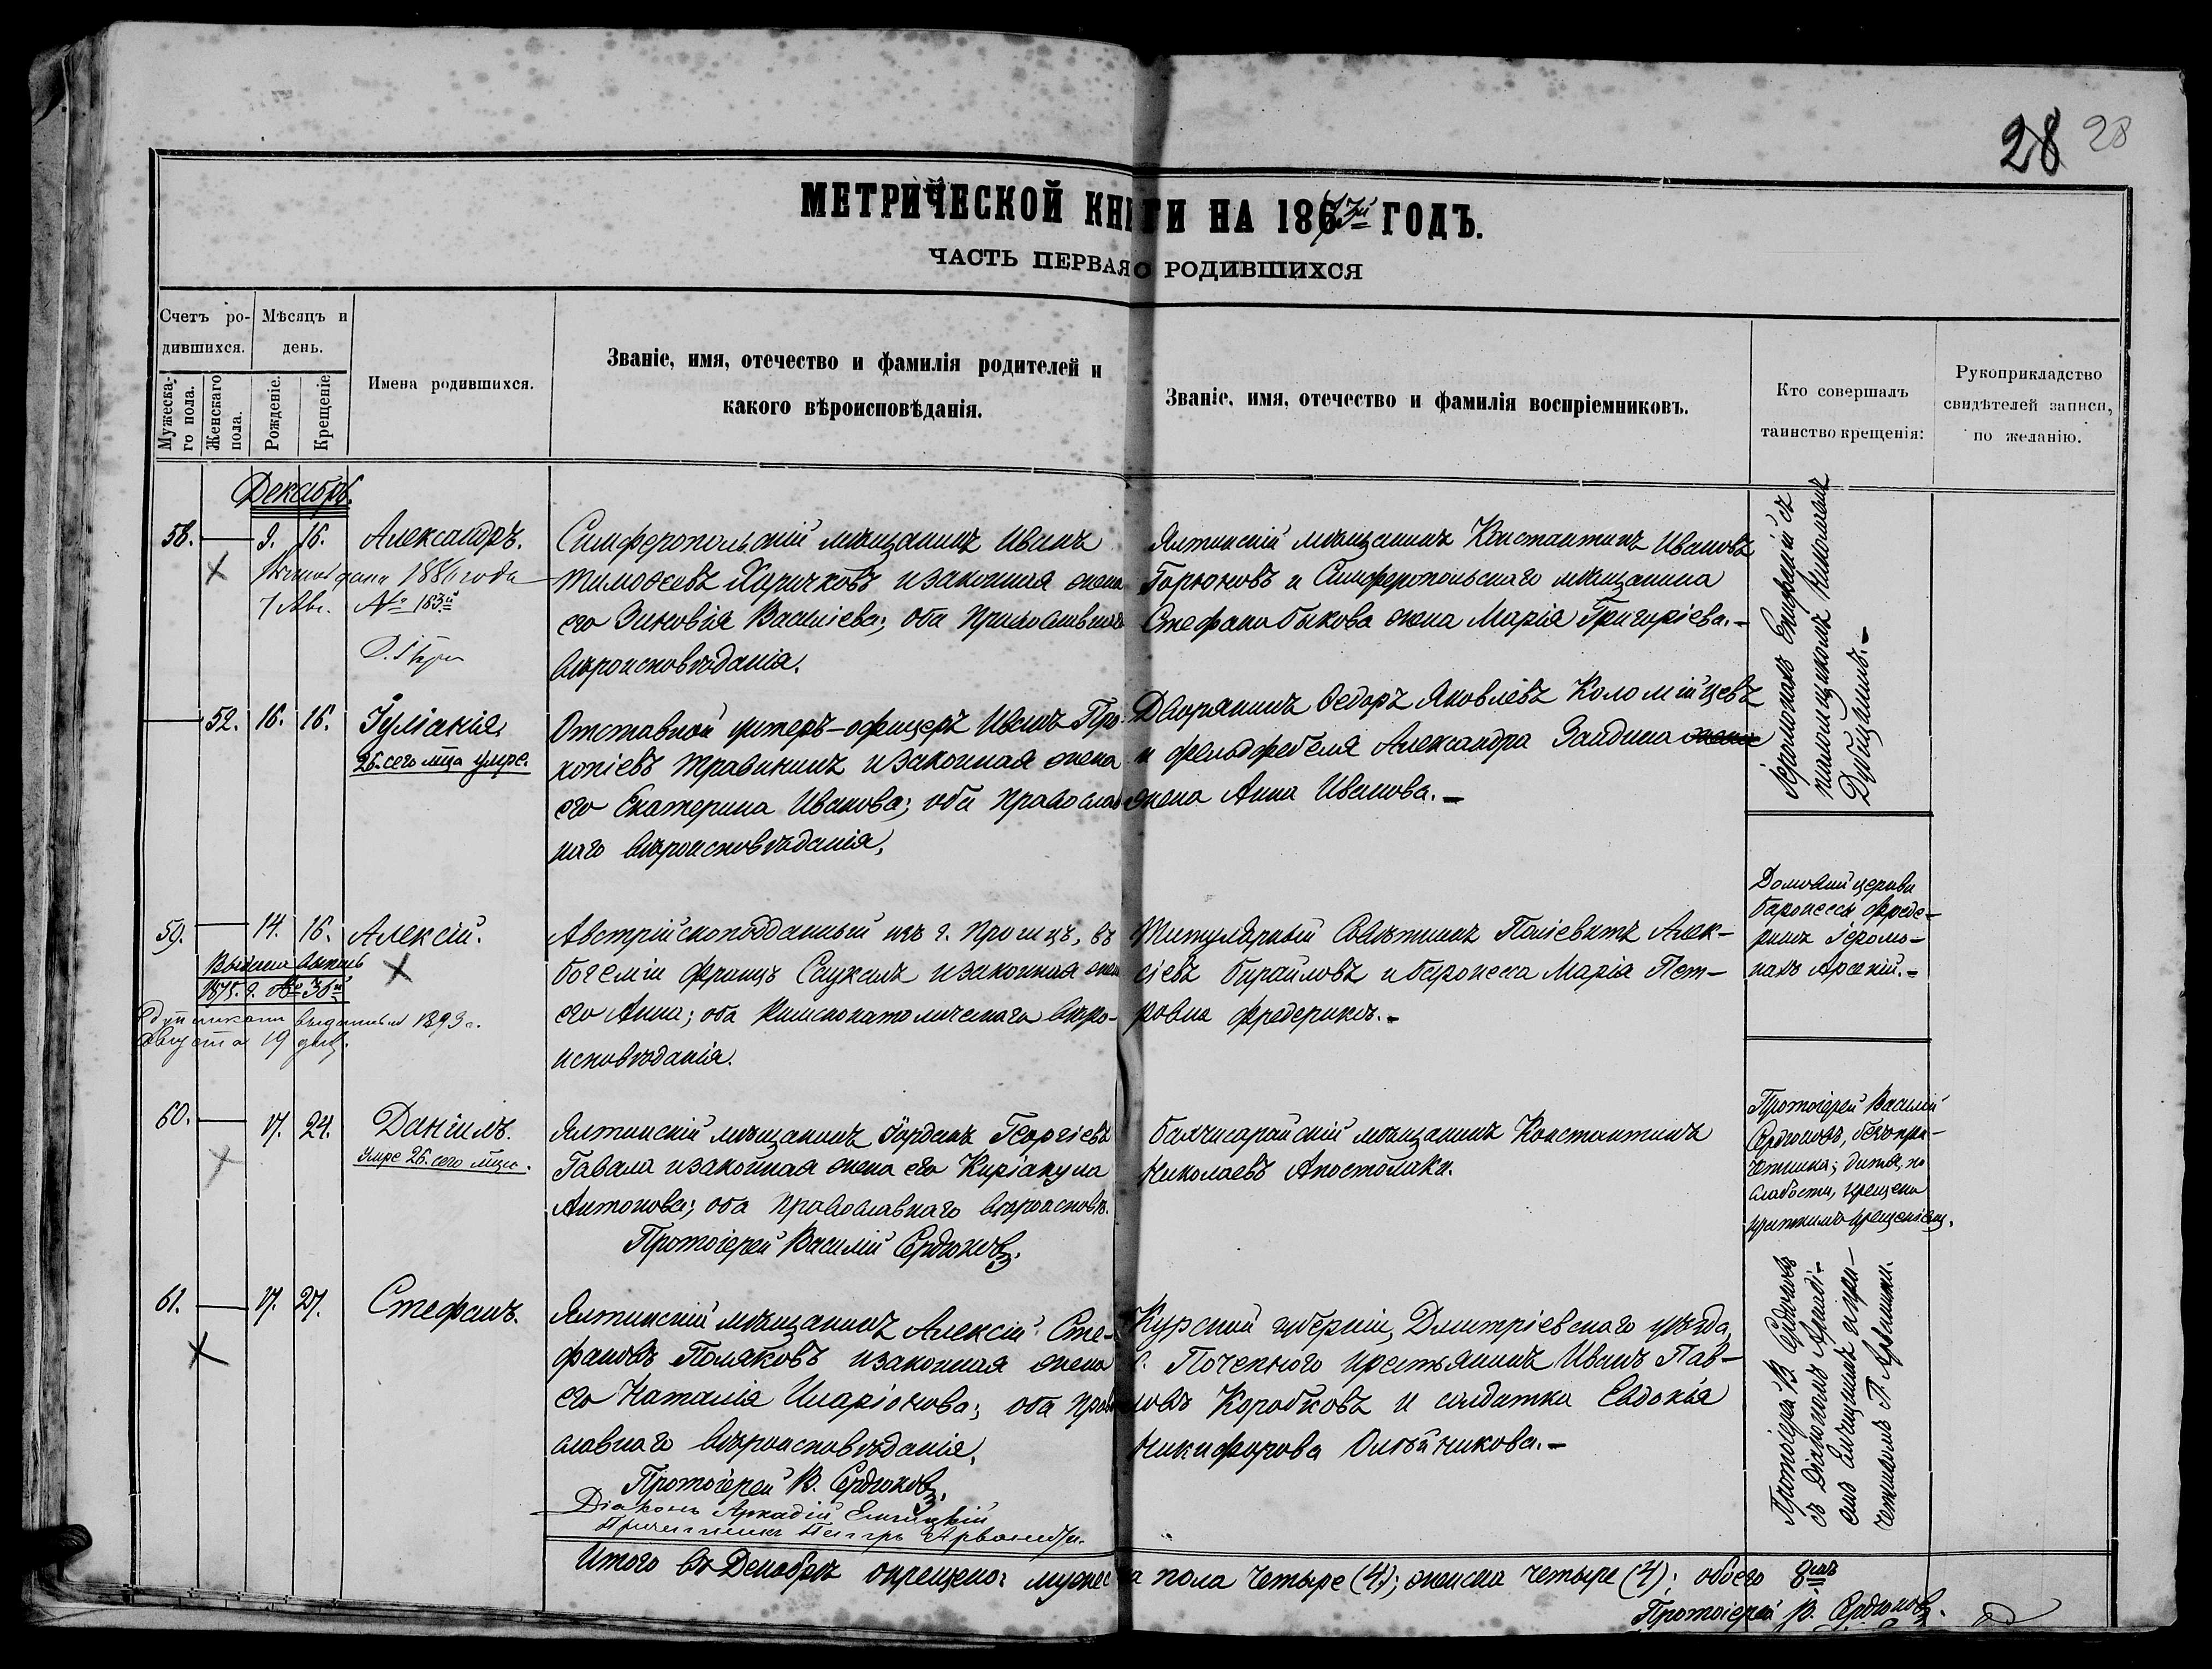 28 28
МЕТРИЧЕСКОЙ КНИГИ НА 1873й ГОДЪ.
ЧАСТЬ ПЕРВАЯ О РОДИВШИХСЯ
Счетъ ро-
дившихся.
Мужеска-
го пола.
Женскаго
пола.
Мѣсяцъ и
день.
Рожденіе.
Крещеніе
Имена родившихся.
Званіе, имя, отечество и фамилія родителей и
какого вѣроисповѣданія.
Званіе, имя, отечество и фамилія воспріемниковъ.
Кто совершалъ
таинство крещенія:
Рукоприкладство
свидѣтелей записи,
по желанію.
Декабрь.
58. 9. 16. Александръ.
1886 года
7 Авг. № 163й
Симферопольскій мѣщанинъ Иванъ
Тимоѳеевъ Харичковъ и законная жена
его Зиновія Василіева; оба православнаго
вѣроисповѣданія.
Ялтинскій мѣщанинъ Константинъ Ивановъ
Горюновъ и Симферопольскаго мѣщанина
Стефана Быкова жена Марія Григоріева.-
Іеромонахъ Елпидій съ
псаломщикомъ Николаемъ
52. 16. 16. Іуліанія
26. сего мца умре.
Отставной унтеръ-офицеръ Иванъ Про-
копіевъ Травинъ и законная жена
его Екатерина Иванова; оба православ-
наго вѣроисповѣданія.
Дворянинъ Ѳедоръ Яковлевъ Коломійцевъ
и фельдфебеля Александра Зайдина
жена Анна Иванова.-
59. 14. 16. Алексій.
Выдана выпись
1875. г. № 36й
выдана 1893 г.
Августа 19 дня.
Австрійскоподданный изъ г. Праги, въ
Богеміи Францъ Саукалъ и законная жена
его Анна; оба Римскокатолическаго вѣро-
исповѣданія.
Титулярный Совѣтникъ Полiевктъ Алек-
сіевъ Бурайловъ и баронесса Марія Пет-
ровна Фредериксъ.-
Домовой церкви
баронессы Фреде-
риксъ Іеромо-
нахъ Арсеній.-
60. 17. 24. Даніилъ.
Умре 26. сего мца.
Ялтинскій мѣщанинъ Іорданъ Георгіевъ
Гавала и законная жена его Киріакула
Антонова; оба православнаго вѣроисповѣ.
Протоіерей Василій Сердюковъ.
Бахчисарайскій мѣщанинъ Константинъ
Николаевъ Апостолаки.
Протоіерей Василій
Сердюковъ, безъ при-
четника; дитя, по
слабости, крещено
краткимъ крещеніемъ.
61. 17. 27. Стефанъ.
Ялтинскій мѣщанинъ Алексій Сте-
фановъ Поляковъ и законная жена
его Наталія Иларіонова; оба право-
славнаго вѣроисповѣданія.
Протоіерей В. Сердюковъ.
Діаконъ Аркадій
Причетникъ Петръ
Курской губерніи, Дмитріевскаго уѣзда,
с. Поченнаго крестьянинъ Иванъ Пав-
ловъ Коробковъ и солдатка Евдокія
Никифорова Олейникова.-
Протоіерей В. Сердюковъ
съ Діакономъ Аркаді-
и при-
четникомъ П.
Итого въ Декабрѣ окрещено: мужеска пола четыре (4); женска четыре (4); обоего 8мь
Протоіерей В. Сердюковъ.